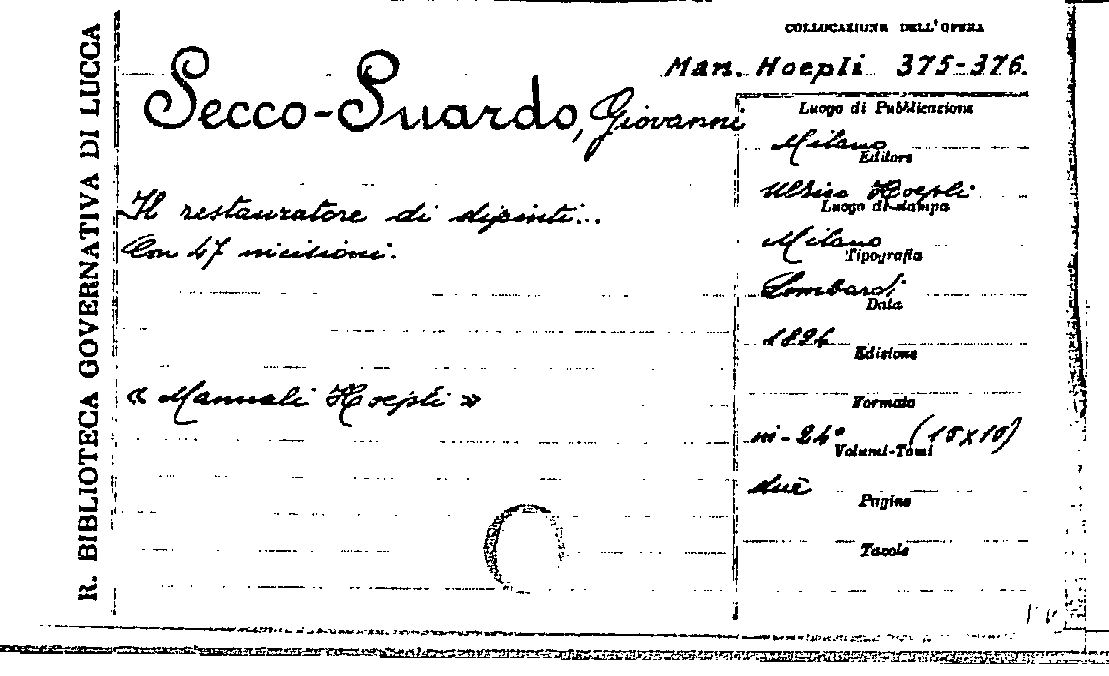 R. BIBLIOTECA GOVERNATIVA DI LUCCA
COLLOCAZIONE DELL'OPERA
Man. Hoepli 375-376.
Secco-Suardo, Giovanni
Il restauratore di dipinti...
Con 47 incisioni.
« Manuali Hoepli »
Luogo di Pubblicazione
Milano
Editore
Ulrico Hoepli
Luogo di stampa
Milano
Tipografia
Lombardi
Data
1894
Edizione
Formato
in-24° (15x10)
Volumi-Tomi
due
Pagine
Tavole